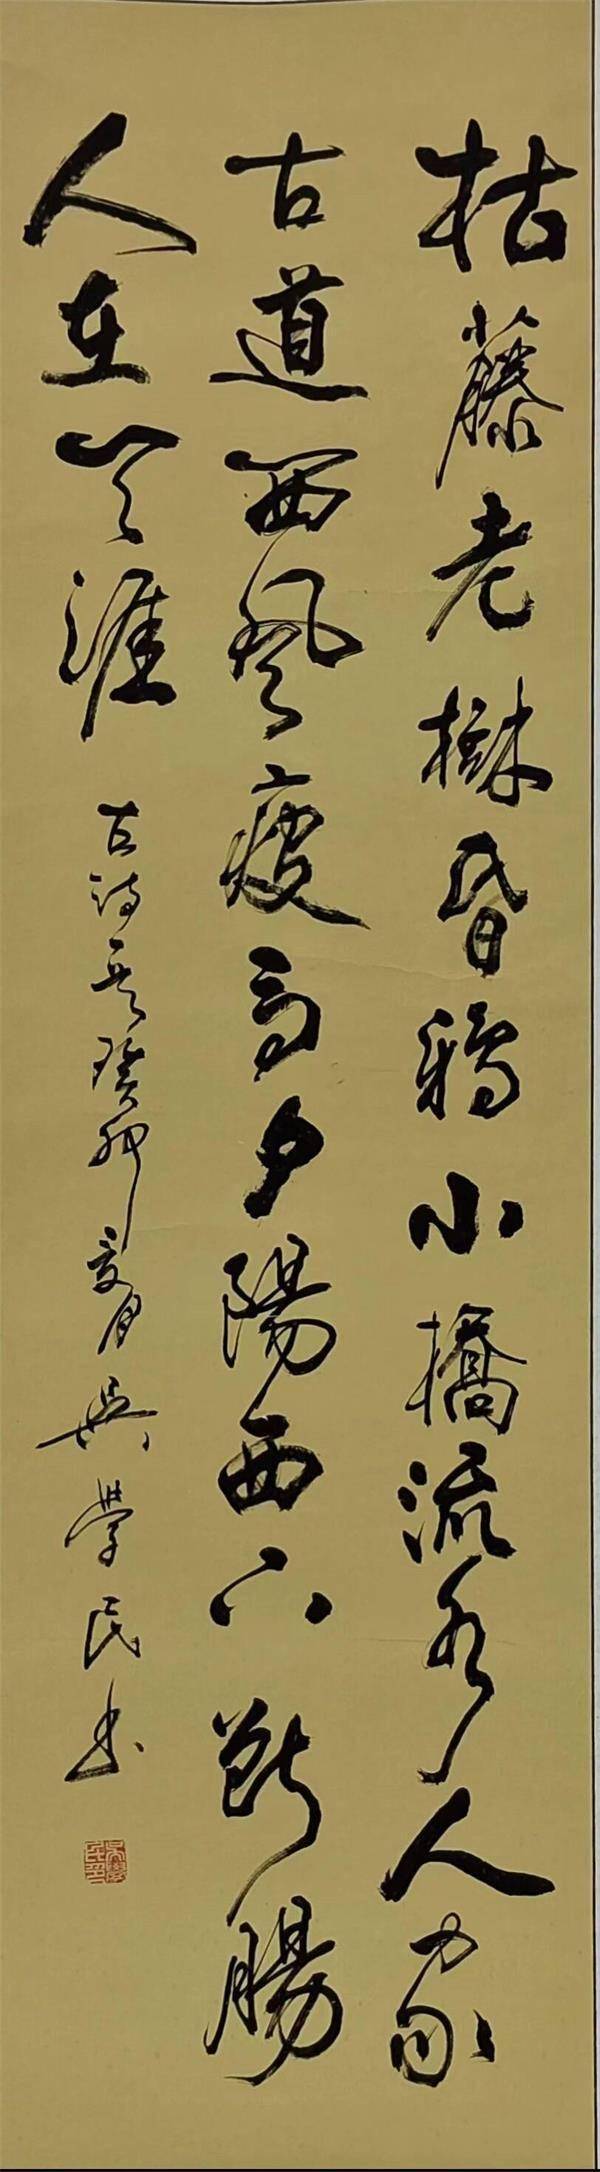 枯藤老樹昏鴉小橋流水人家
古道西風瘦馬夕陽西下斷腸
人在天涯
古詩一首癸卯夏月吳學民書
吳學民印